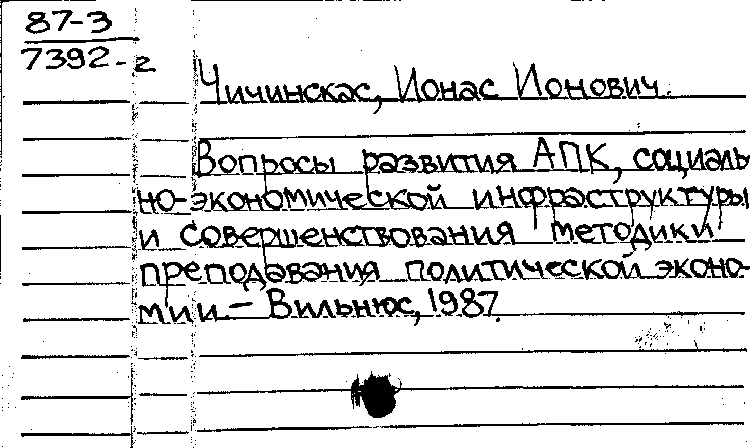 87-3
7392-г
Чичинскас, Ионас Ионович.
Вопросы развития АПК, социаль
но-экономической инфраструктуры
и совершенствования методики
преподавания политической эконо-
мии. – Вильнюс, 1987.